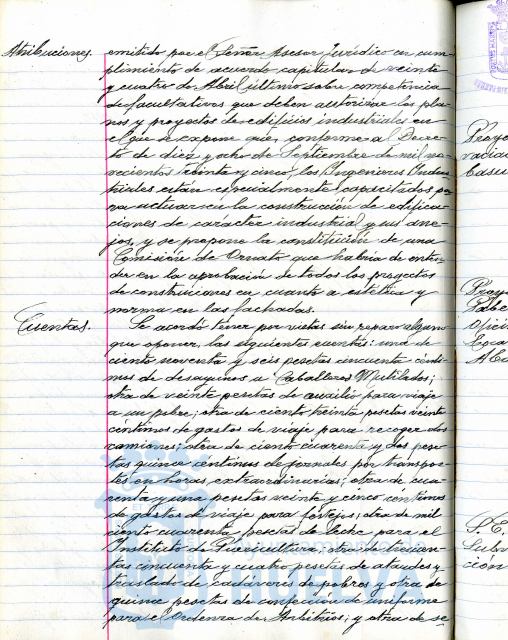 Atribuciones. emitido por el Señor Asesor Jurídico en cum-
plimiento de acuerdo capitular de veinte
y cuatro de Abril último sobre competencia
de facultativos que deben autorizar los pla-
nos y proyectos de edificios industriales en
el que se expone que, conforme al Decre-
to de diez y ocho de Septiembre de mil no-
vecientos treinta y cinco, los Ingenieros Indus-
triales están especialmente capacitados pa
ra actuar en la construcción de edifica-
ciones de carácter industrial y sus ane-
jos, y se propone la constitución de una
Comisión de Ornato que habría de enten-
der en la aprobación de todos los proyectos
de construcciones en cuanto a estética y
norma en las fachadas.
Cuentas. Se acordó tener por vistas sin reparo alguno
que oponer, las siguientes cuentas: una de
ciento noventa y seis pesetas cincuenta cénti-
mos de desayunos a Caballeros Mutilados;
otra de veinte pesetas de auxilio para viaje
a un pobre; otra de ciento treinta pesetas veinte
céntimos de gastos de viaje para recoger dos
camiones; otra de ciento cuarenta y dos pese-
tas quince céntimos de jornales por transpor-
tes en horas extraordinarias; otra de cua-
renta y una pesetas veinte y cinco céntimos
de gastos de viaje para festejos; otra de mil
ciento cuarenta pesetas de leche para el
Instituto de Puericultura; otra de trescien-
tas cincuenta y cuatro pesetas de ataudes y
traslado de cadáveres de pobres y otra de
quince pesetas de confección de uniforme
para el Ordenanza de Arbitrios; y otra de se